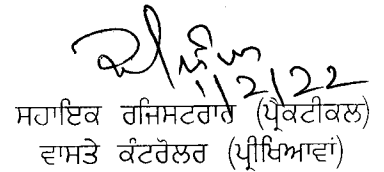 1/2/22
ਸਹਾਇਕ ਰਜਿਸਟਰਾਰ (ਪ੍ਰੈਕਟੀਕਲ)
ਵਾਸਤੇ ਕੰਟਰੋਲਰ (ਪ੍ਰੀਖਿਆਵਾਂ)